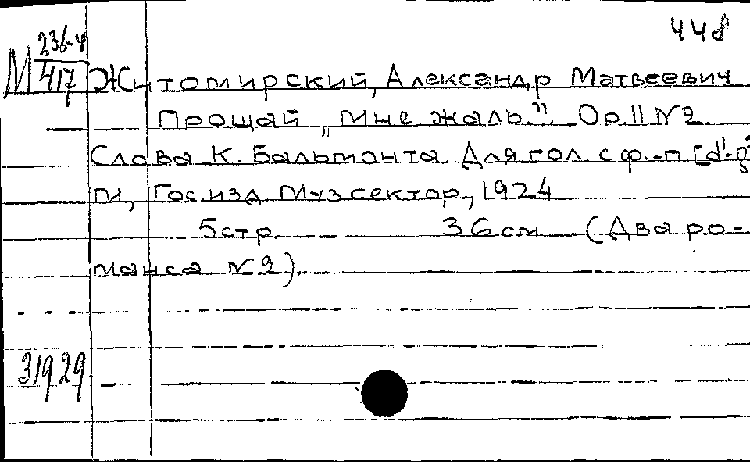 448
М 236-4
417
Житомирский, Александр Матвеевич
Прощай „Мне жаль." Op. 11 № 2
Слова К. Бальмонта. Для гол. с ф.-п.
М, Гос. изд. Музсектор, 1924
5 стр. 36 см (Два ро-
манса № 2).
31929